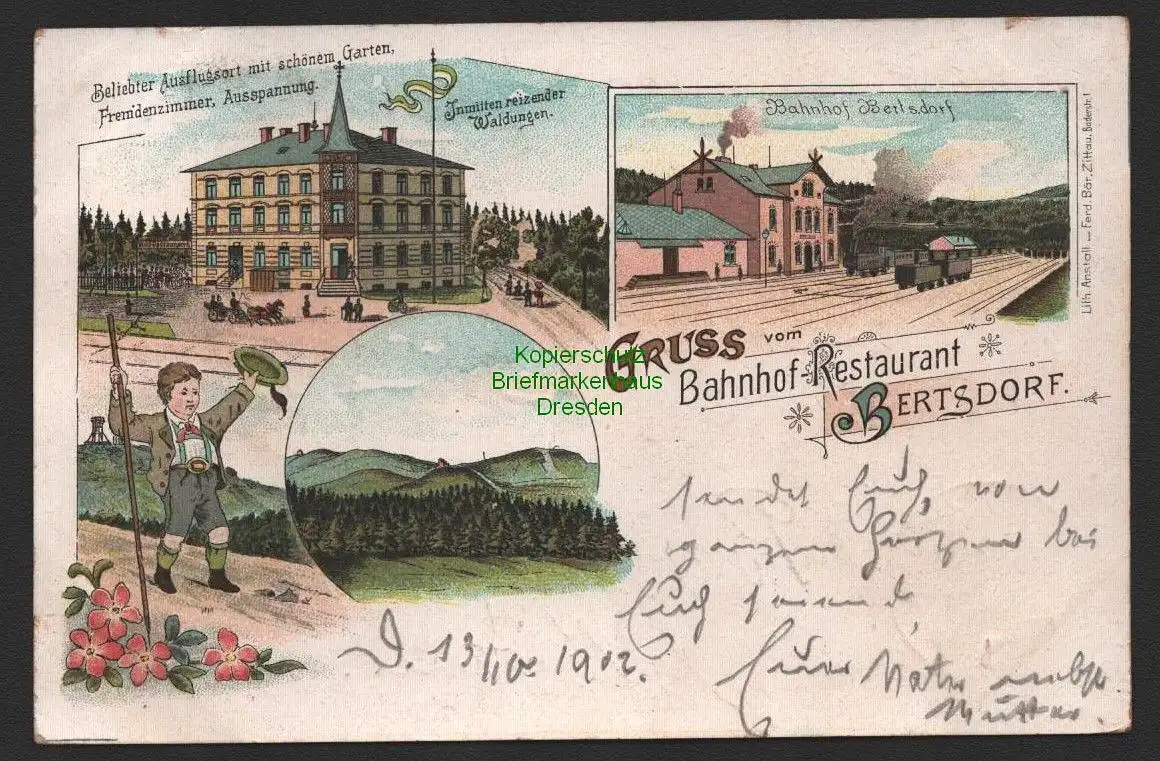 Beliebter Ausflugsort mit schönem Garten,
Fremdenzimmer, Ausspannung.
Inmitten reizender
Waldungen.
Bahnhof Bertsdorf
Lith. Anstalt – Ferd. Bär, Zittau, Baderstr. 1
GRUSS vom
Bahnhof-Restaurant
BERTSDORF.
Kopierschutz
Briefmarkenhaus
Dresden
sendet Euch, von
ganzem Herzen bei
Euch seiend
D. 13 1902.
Euer Vater nebst
Mutter.